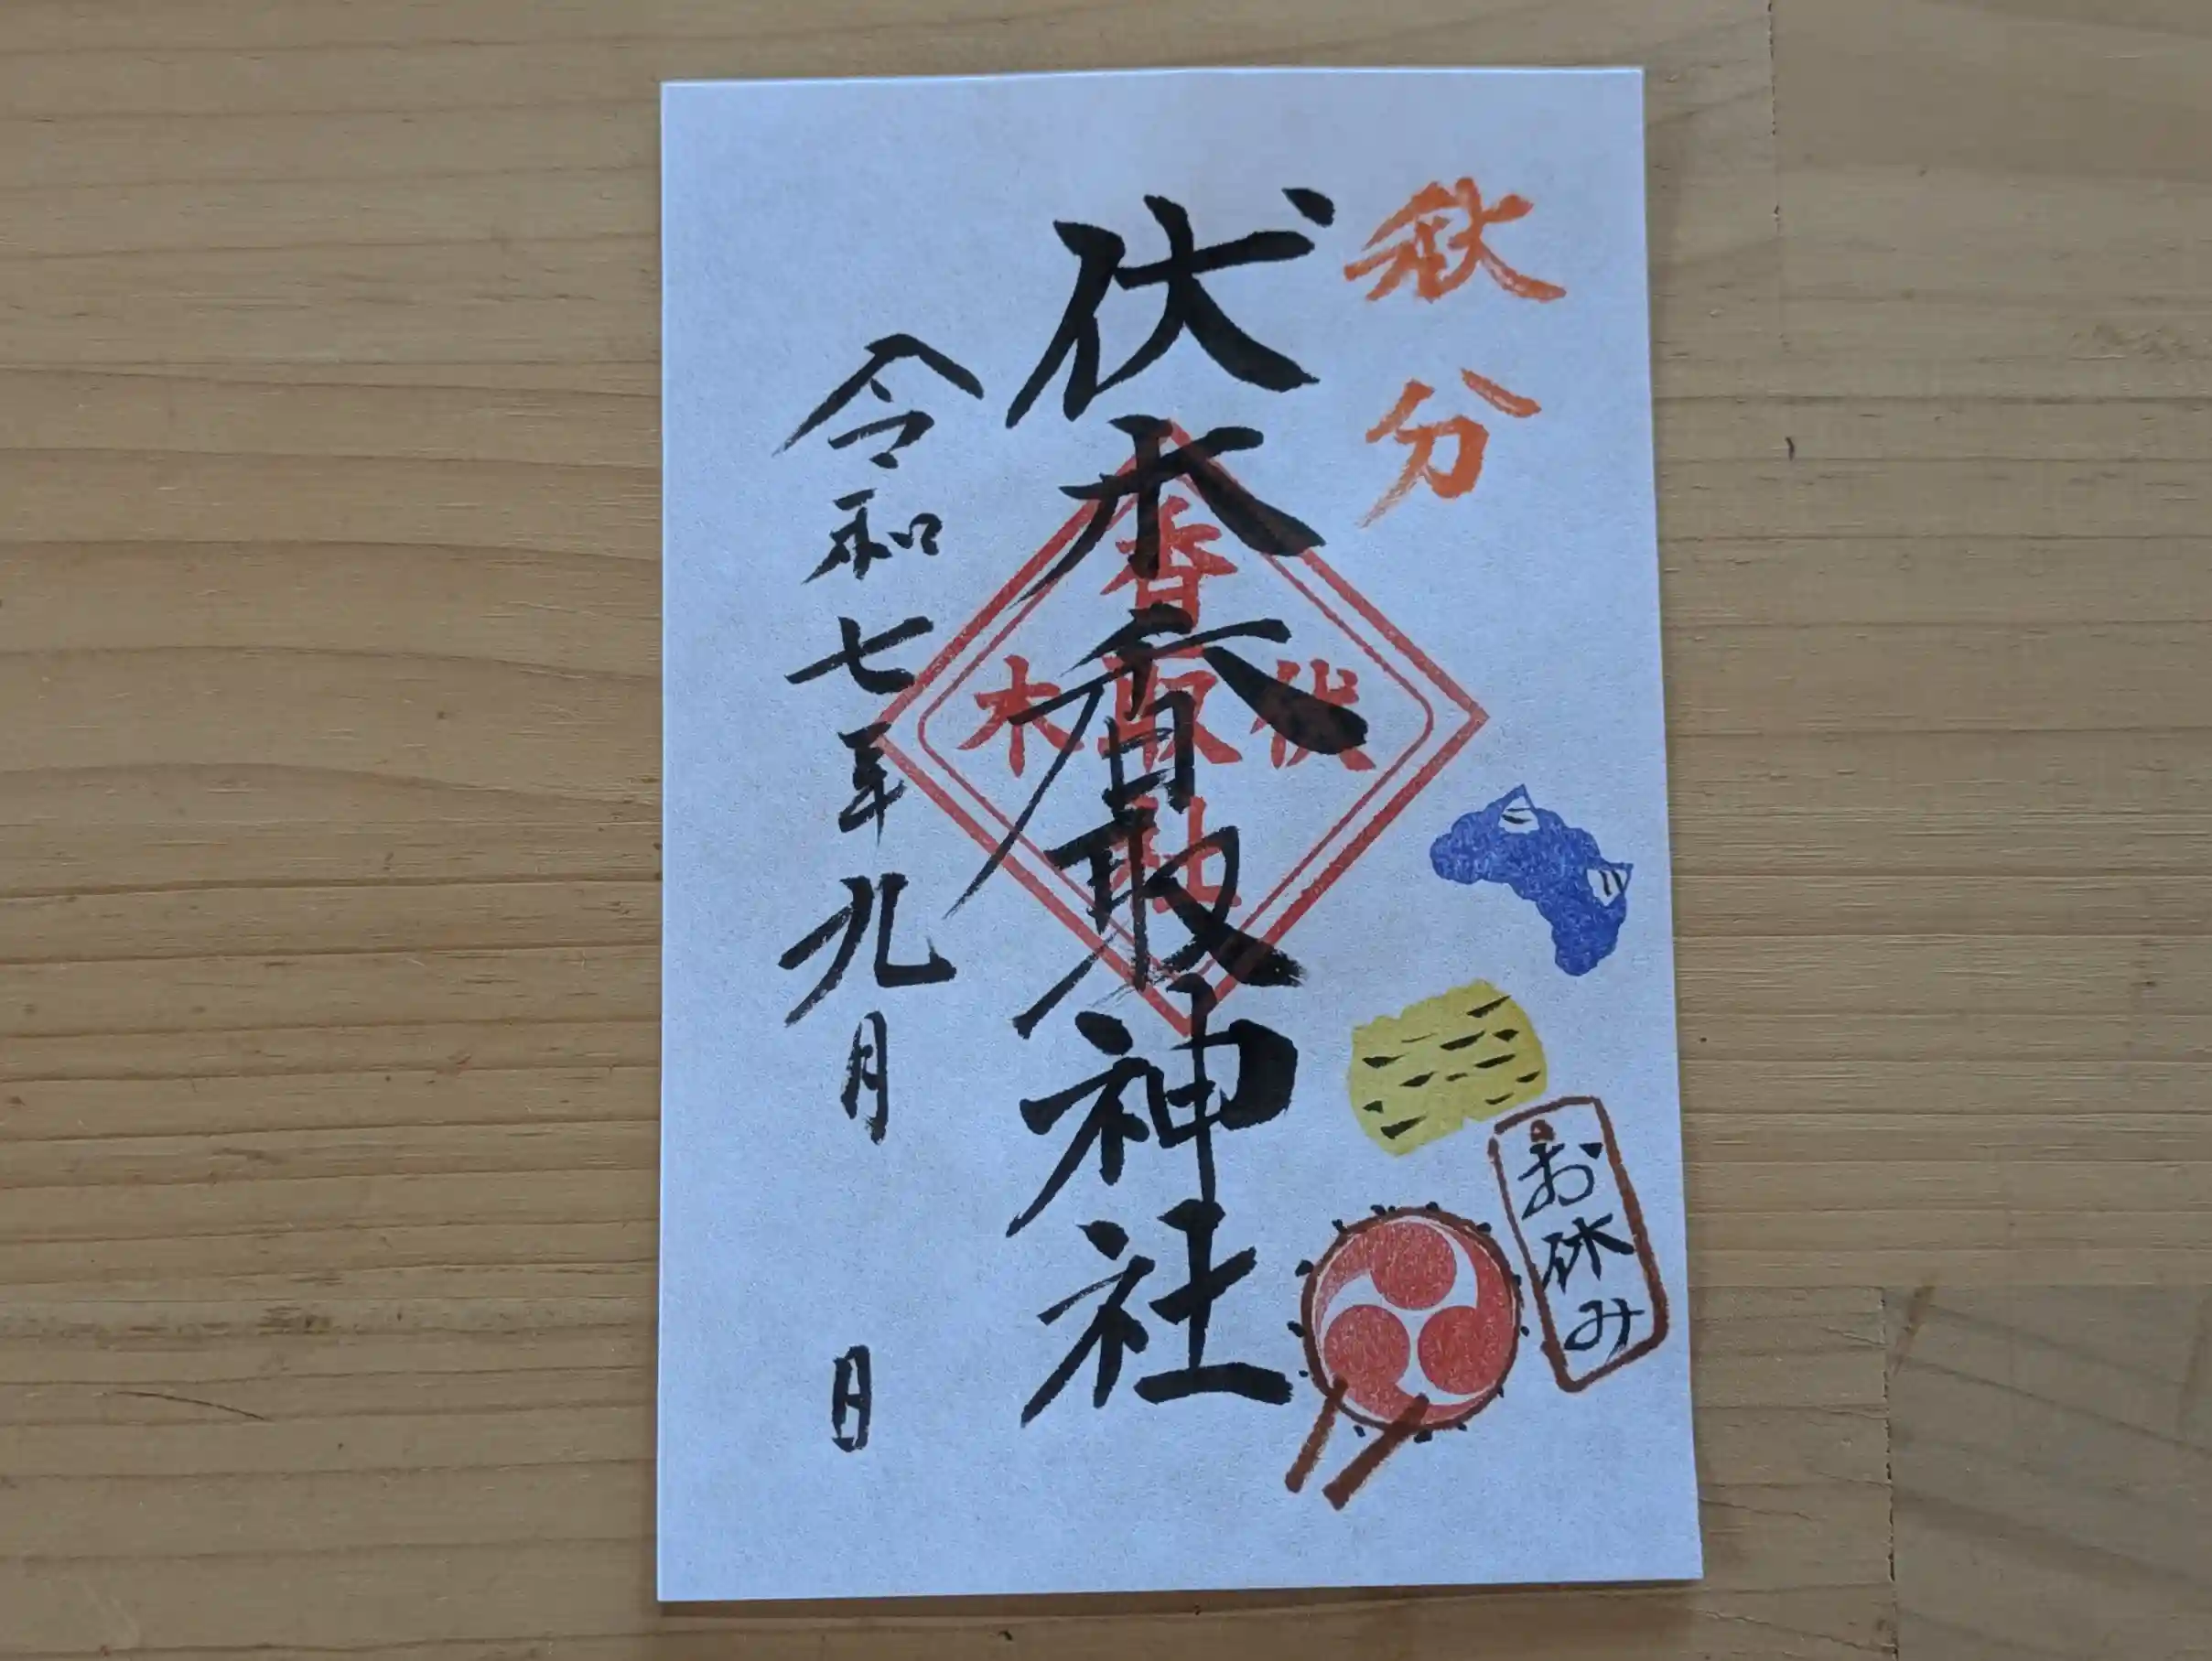 秋分
伏木香取神社
香取社
伏木
令和七年九月 日
お休み